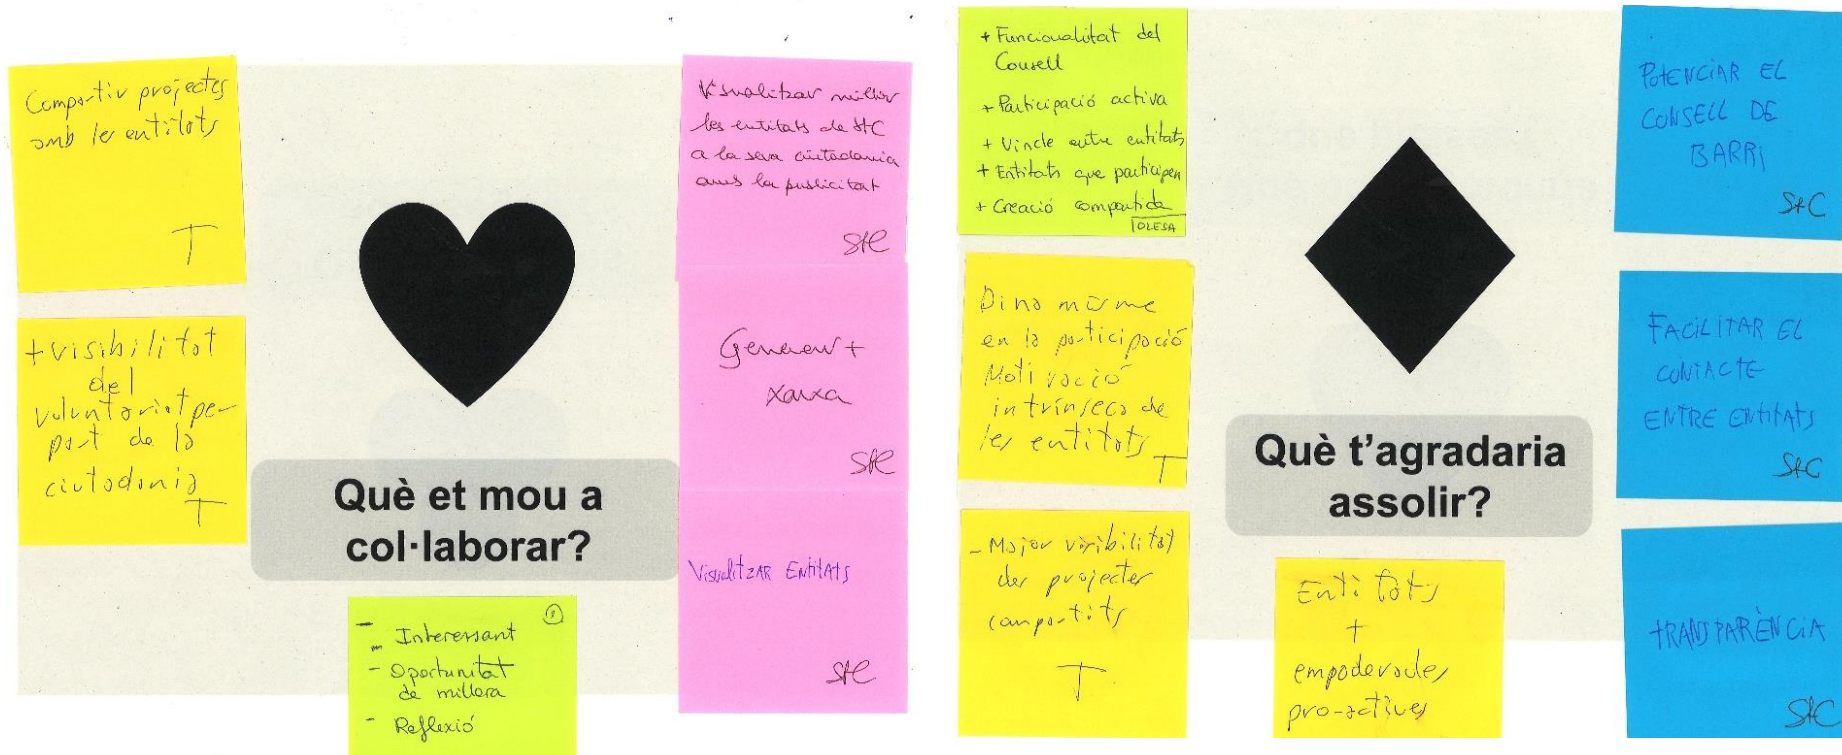 Compartir projectes
amb les entitats
T
+ visibilitat
del
voluntariat per
part de la
ciutadania
T
Què et mou a
col·laborar?
- Interessant
- Oportunitat
de millora
- Reflexió
Visualitzar millor
les entitats de StC
a la seva ciutadania
amb la publicitat
StC
Generar +
xarxa
StC
Visualitzar Entitats
StC
+ Funcionalitat del
Consell
+ Participació activa
+ Vincle entre entitats
+ Entitats que participen
+ Creació compartida
OLESA
Dinamisme
en la participació
Motivació
intrínseca de
les entitats
T
- Major visibilitat
dels projectes
compartits
T
Què t'agradaria
assolir?
Entitats
+
empoderades
pro-actives
POTENCIAR EL
CONSELL DE
BARRI
StC
FACILITAR EL
CONTACTE
ENTRE ENTITATS
StC
TRANSPARÈNCIA
StC